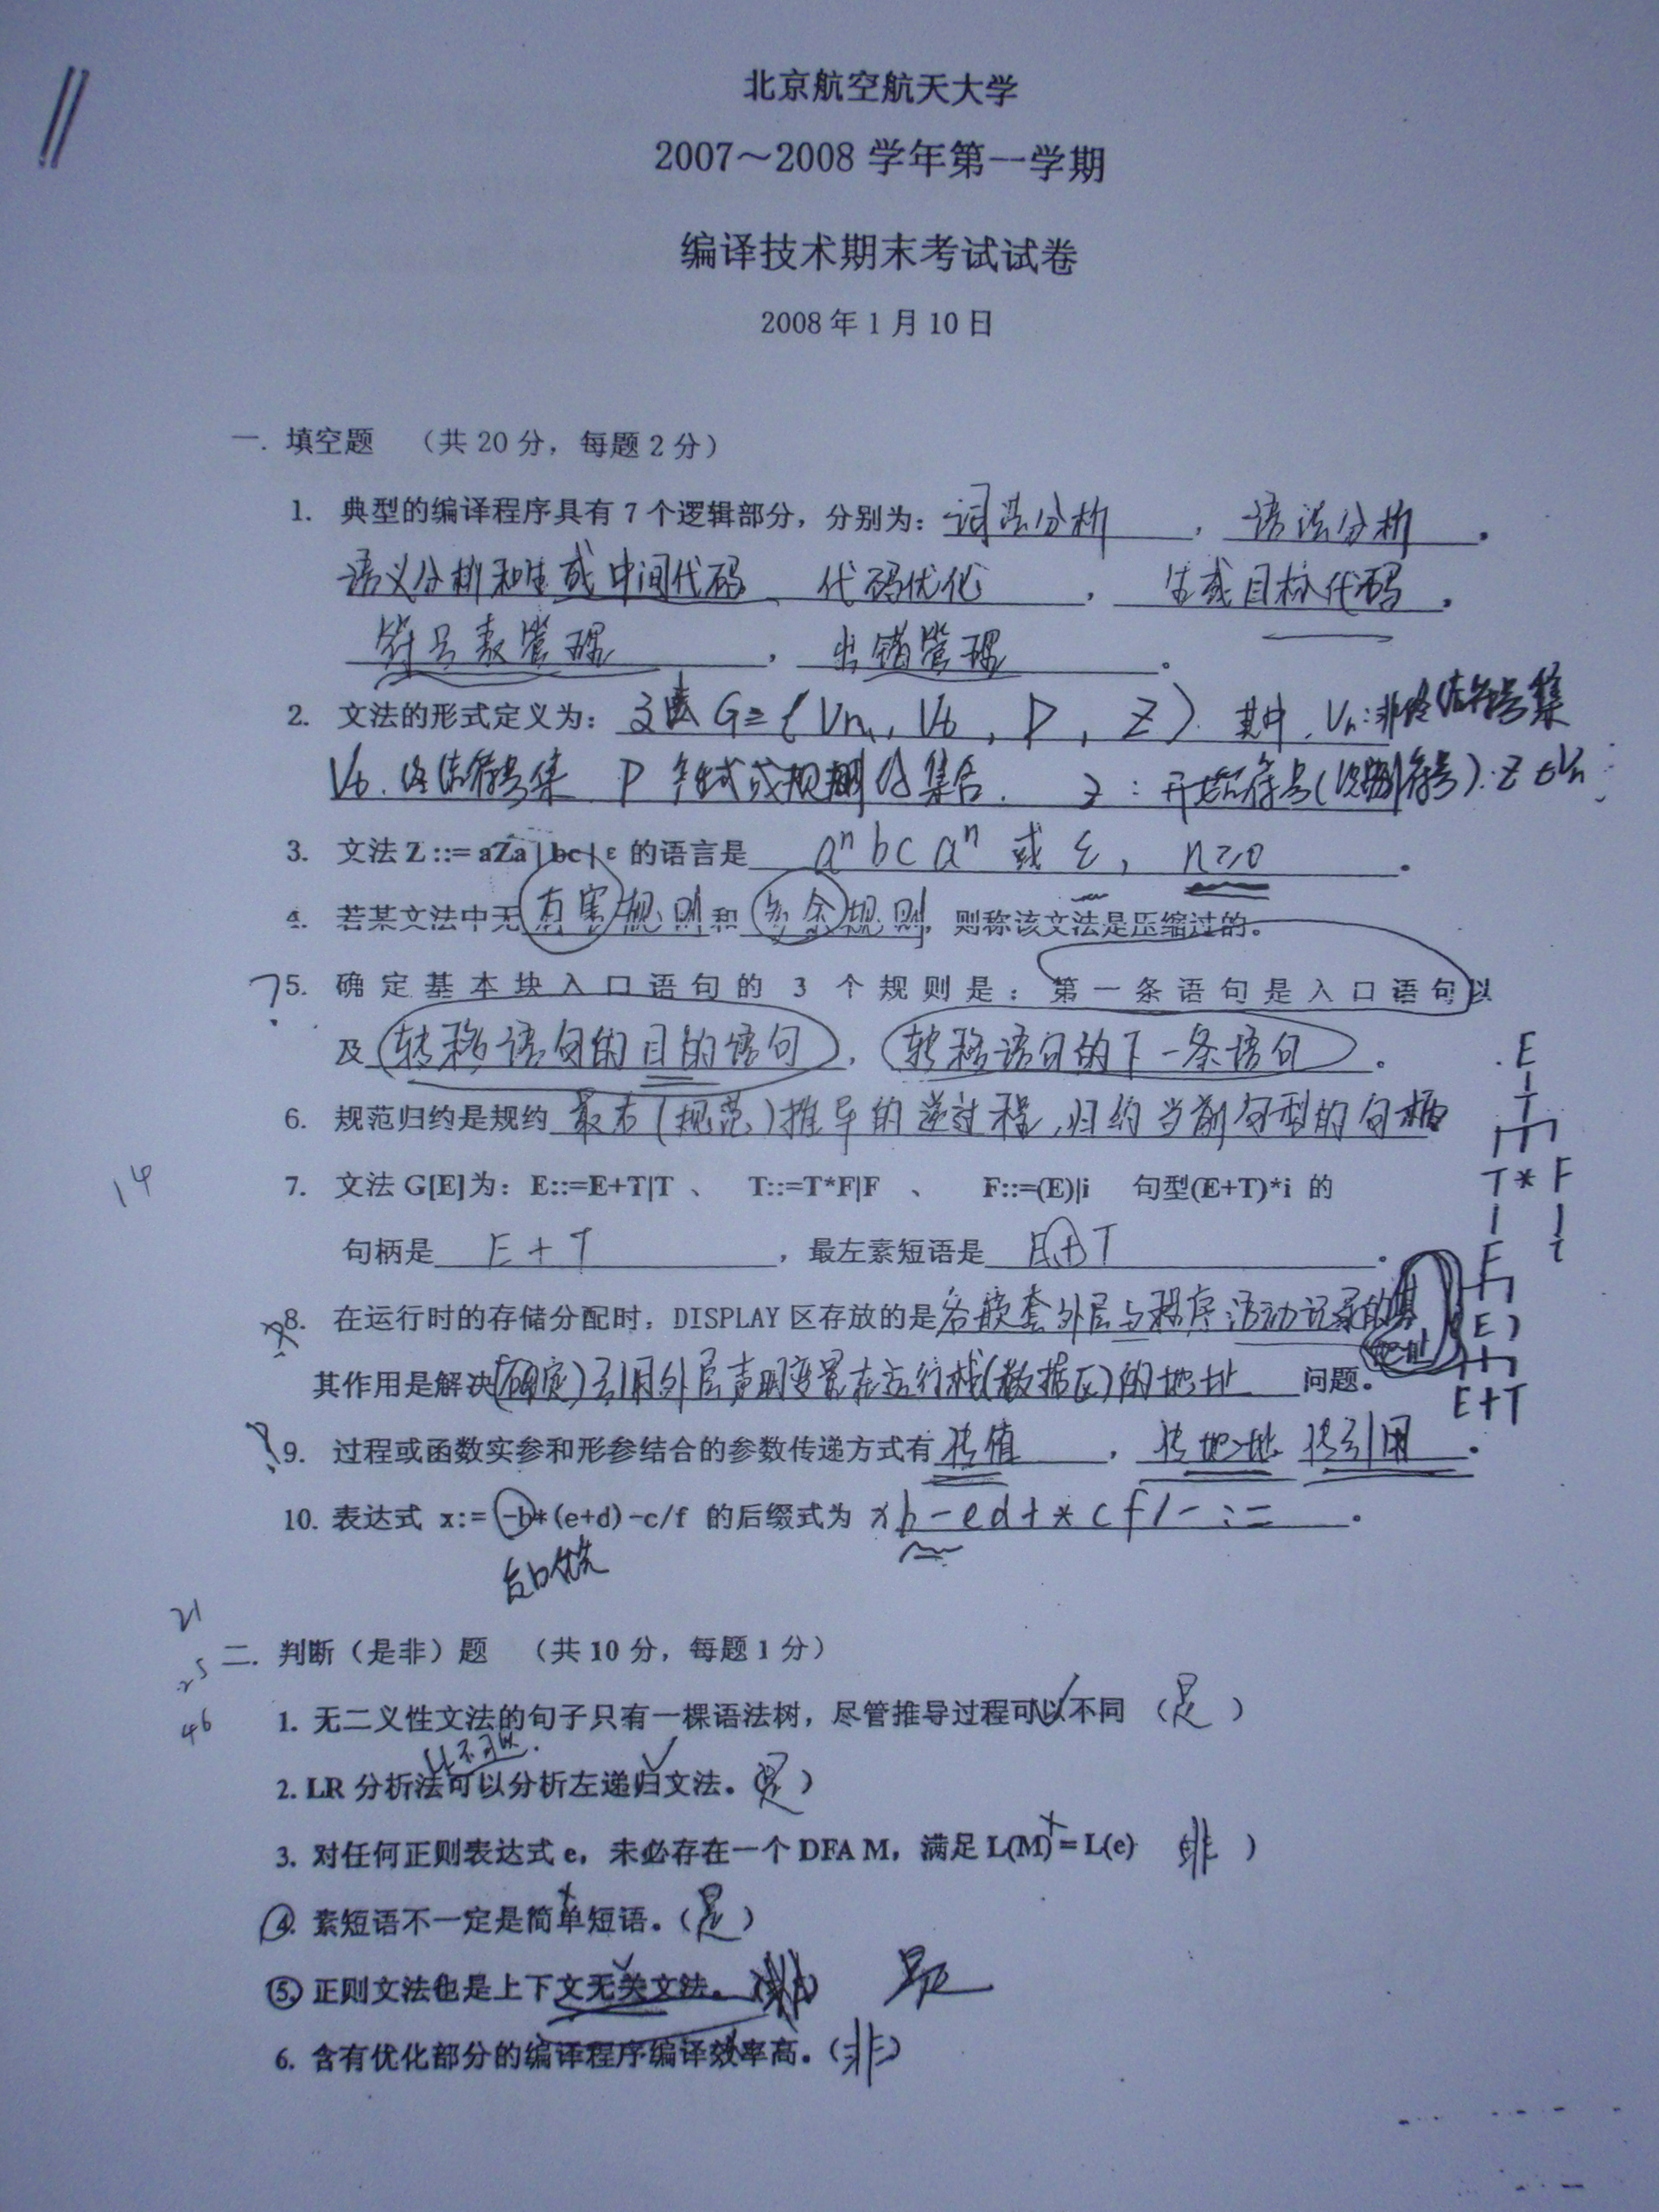 北京航空航天大学
2007～2008 学年第一学期
编译技术期末考试试卷
2008 年 1 月 10 日
一. 填空题 （共 20 分，每题 2 分）
1. 典型的编译程序具有 7 个逻辑部分，分别为：词法分析，语法分析，
语义分析和生成中间代码、代码优化，生成目标代码，
符号表管理，出错管理。
2. 文法的形式定义为：文法 G=(Vn, Vt, P, Z). 其中, Vn:非终结符号集
Vt. 终结符号集 P 产生式或规则的集合. Z：开始符号(识别符号). Z∈Vn
3. 文法 Z ::= aZa | bc | ε 的语言是 aⁿbcaⁿ 或 ε, n≥0。
4. 若某文法中无有害规则和多余规则，则称该文法是压缩过的。
?5. 确定基本块入口语句的 3 个规则是：第一条语句是入口语句以
及转移语句的目的语句，转移语句的下一条语句。
6. 规范归约是规约最右(规范)推导的逆过程,归约当前句型的句柄
14
7. 文法 G[E]为：E::=E+T|T 、 T::=T*F|F 、 F::=(E)|i 句型(E+T)*i 的
句柄是 E+T，最左素短语是 E+T。
8. 在运行时的存储分配时，DISPLAY 区存放的是各嵌套外层与程序活动记录的基地址
其作用是解决(确定)引用外层声明变量在运行栈(数据区)的地址问题。
9. 过程或函数实参和形参结合的参数传递方式有传值，传地址 传引用。
10. 表达式 x:= -b*(e+d)-c/f 的后缀式为 xb-ed+*cf/-:=。
E
T
T * F
F i
( E )
E+T
21
25
46
二. 判断（是非）题 （共 10 分，每题 1 分）
1. 无二义性文法的句子只有一棵语法树，尽管推导过程可以不同（是）
LL不可以.
2. LR 分析法可以分析左递归文法。（是）
3. 对任何正则表达式 e，未必存在一个 DFA M，满足 L(M) = L(e) （非）
4. 素短语不一定是简单短语。（是）
5. 正则文法也是上下文无关文法。（非） 是
6. 含有优化部分的编译程序编译效率高。（非）